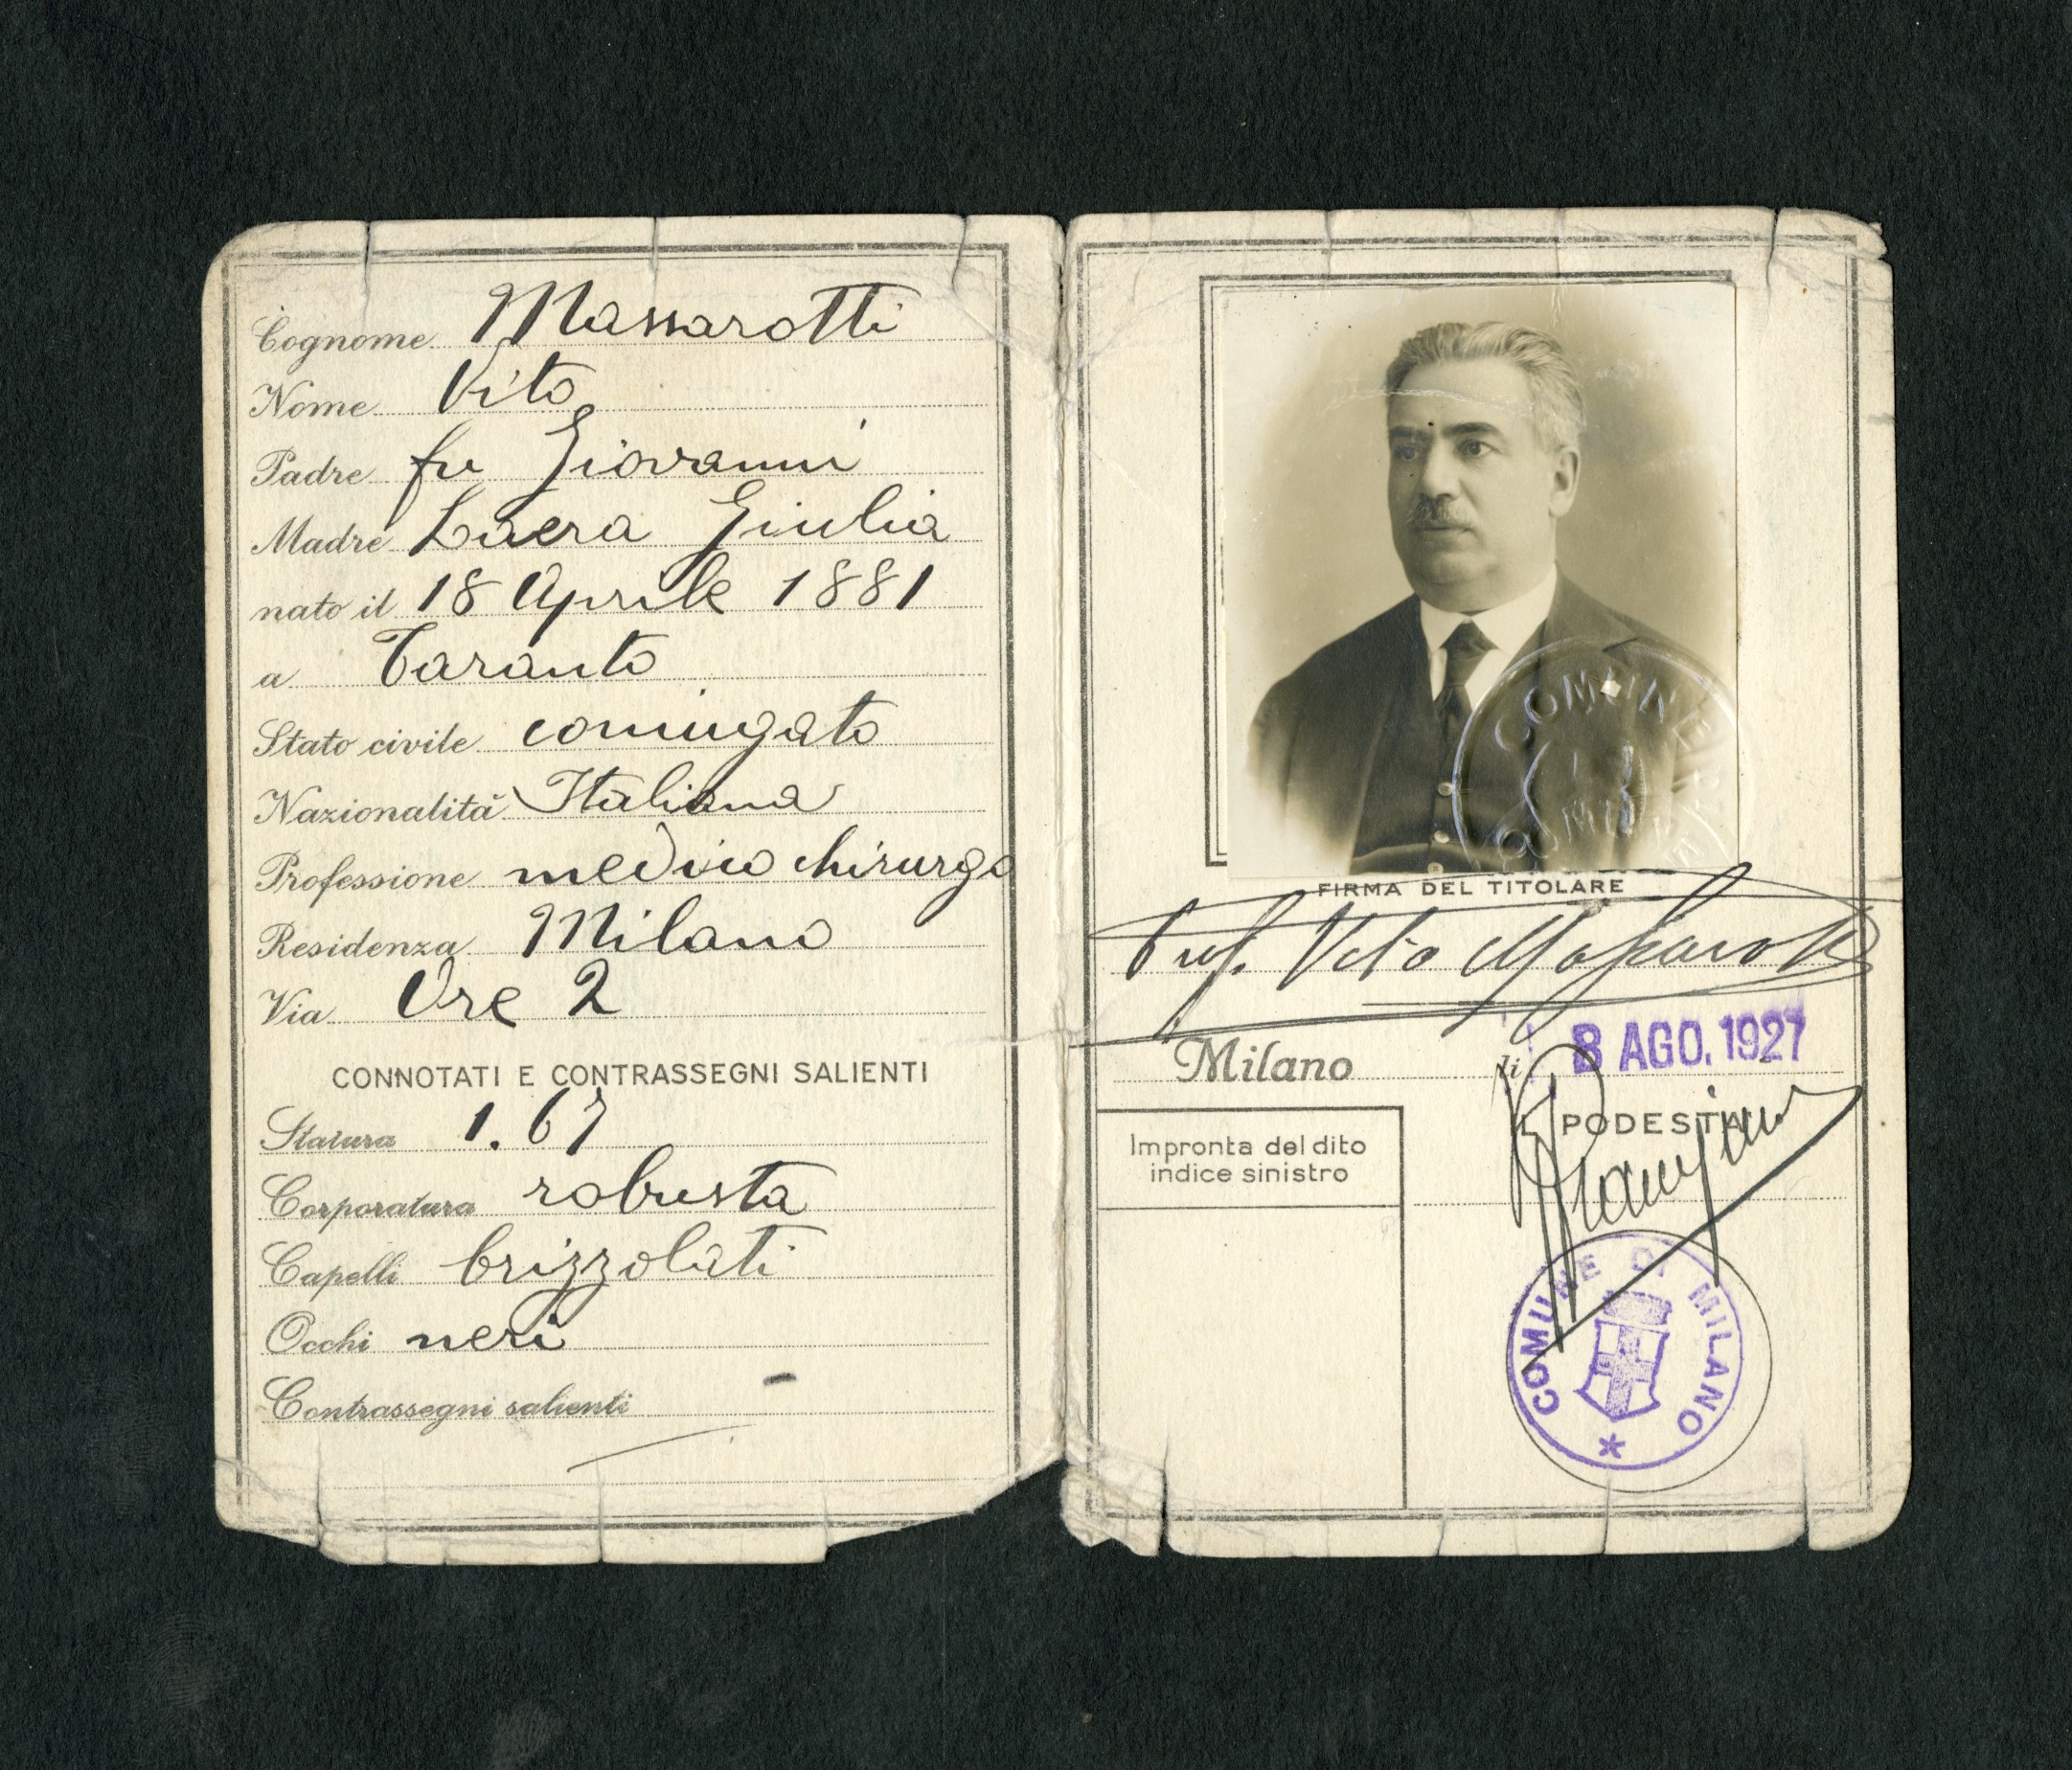 Cognome Massarotti
Nome Vito
Padre fu Giovanni
Madre Laera Giulia
nato il 18 Aprile 1881
a Taranto
Stato civile coniugato
Nazionalità Italiana
Professione medico chirurgo
Residenza Milano
Via Ore 2
CONNOTATI E CONTRASSEGNI SALIENTI
Statura 1.67
Corporatura robusta
Capelli brizzolati
Occhi neri
Contrassegni salienti -
COMUNE DI MILANO
FIRMA DEL TITOLARE
Prof. Vito Massarotti
Milano li 8 AGO. 1927
IL PODESTÀ
Impronta del dito
indice sinistro
COMUNE DI MILANO